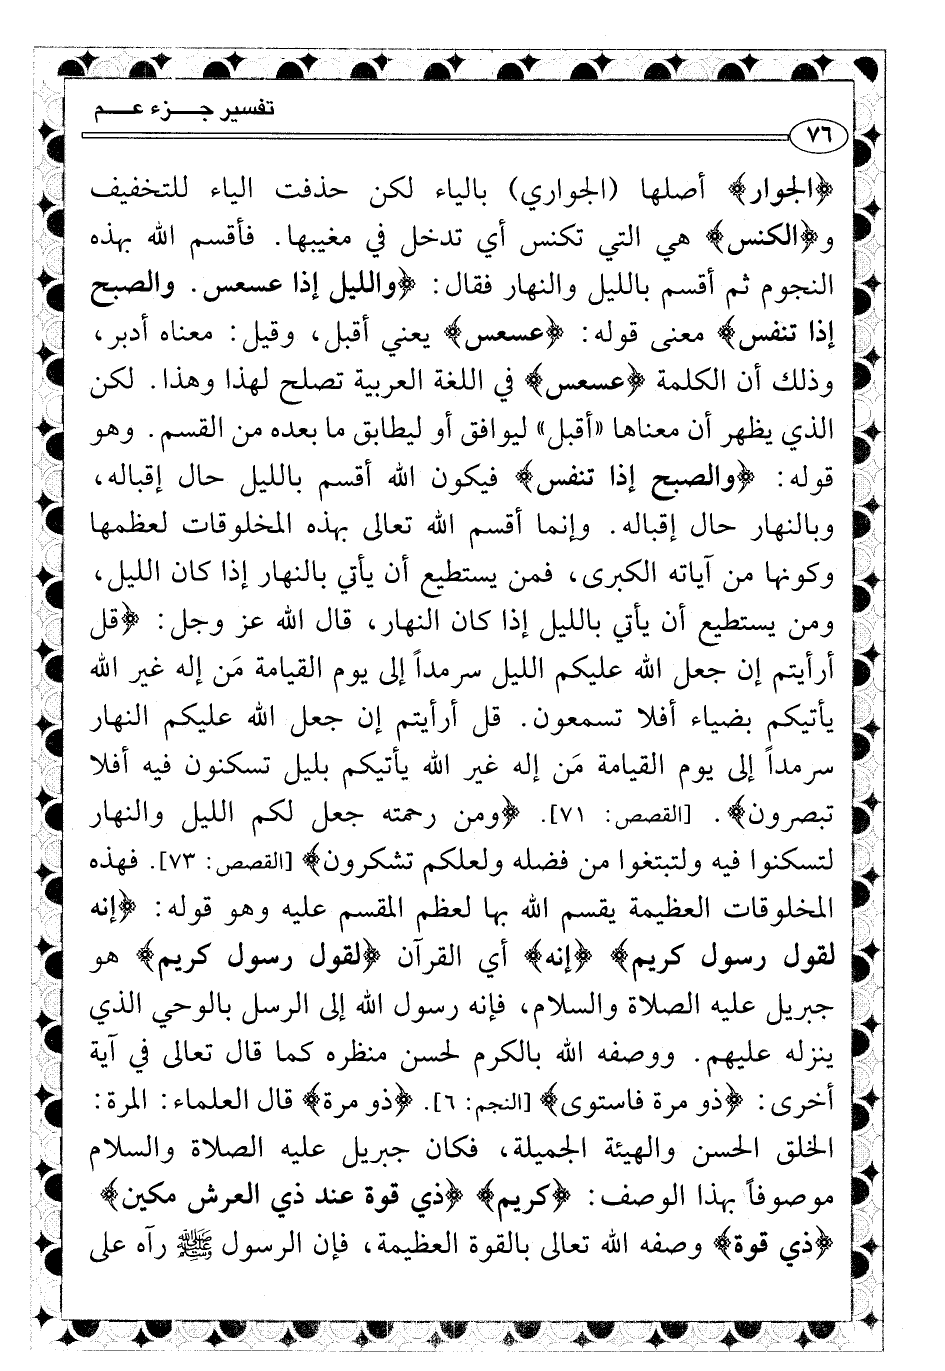 تفسير جـــزء عـــم
٧٦
﴿الجوار﴾ أصلها (الجواري) بالياء لكن حذفت الياء للتخفيف
و﴿الكنس﴾ هي التي تكنس أي تدخل في مغيبها. فأقسم الله بهذه
النجوم ثم أقسم بالليل والنهار فقال: ﴿والليل إذا عسعس. والصبح
إذا تنفس﴾ معنى قوله: ﴿عسعس﴾ يعني أقبل، وقيل: معناه أدبر،
وذلك أن الكلمة ﴿عسعس﴾ في اللغة العربية تصلح لهذا وهذا. لكن
الذي يظهر أن معناها «أقبل» ليوافق أو ليطابق ما بعده من القسم. وهو
قوله: ﴿والصبح إذا تنفس﴾ فيكون الله أقسم بالليل حال إقباله،
وبالنهار حال إقباله. وإنما أقسم الله تعالى بهذه المخلوقات لعظمها
وكونها من آياته الكبرى، فمن يستطيع أن يأتي بالنهار إذا كان الليل،
ومن يستطيع أن يأتي بالليل إذا كان النهار، قال الله عز وجل: ﴿قل
أرأيتم إن جعل الله عليكم الليل سرمداً إلى يوم القيامة مَن إله غير الله
يأتيكم بضياء أفلا تسمعون. قل أرأيتم إن جعل الله عليكم النهار
سرمداً إلى يوم القيامة مَن إله غير الله يأتيكم بليل تسكنون فيه أفلا
تبصرون﴾. [القصص: ٧١]. ﴿ومن رحمته جعل لكم الليل والنهار
لتسكنوا فيه ولتبتغوا من فضله ولعلكم تشكرون﴾ [القصص: ٧٣]. فهذه
المخلوقات العظيمة يقسم الله بها لعظم المقسم عليه وهو قوله: ﴿إنه
لقول رسول كريم﴾ ﴿إنه﴾ أي القرآن ﴿لقول رسول كريم﴾ هو
جبريل عليه الصلاة والسلام، فإنه رسول الله إلى الرسل بالوحي الذي
ينزله عليهم. ووصفه الله بالكرم لحسن منظره كما قال تعالى في آية
أخرى: ﴿ذو مرة فاستوى﴾ [النجم: ٦]. ﴿ذو مرة﴾ قال العلماء: المرة:
الخلق الحسن والهيئة الجميلة، فكان جبريل عليه الصلاة والسلام
موصوفاً بهذا الوصف: ﴿كريم﴾ ﴿ذي قوة عند ذي العرش مكين﴾
﴿ذي قوة﴾ وصفه الله تعالى بالقوة العظيمة، فإن الرسول ﷺ رآه على